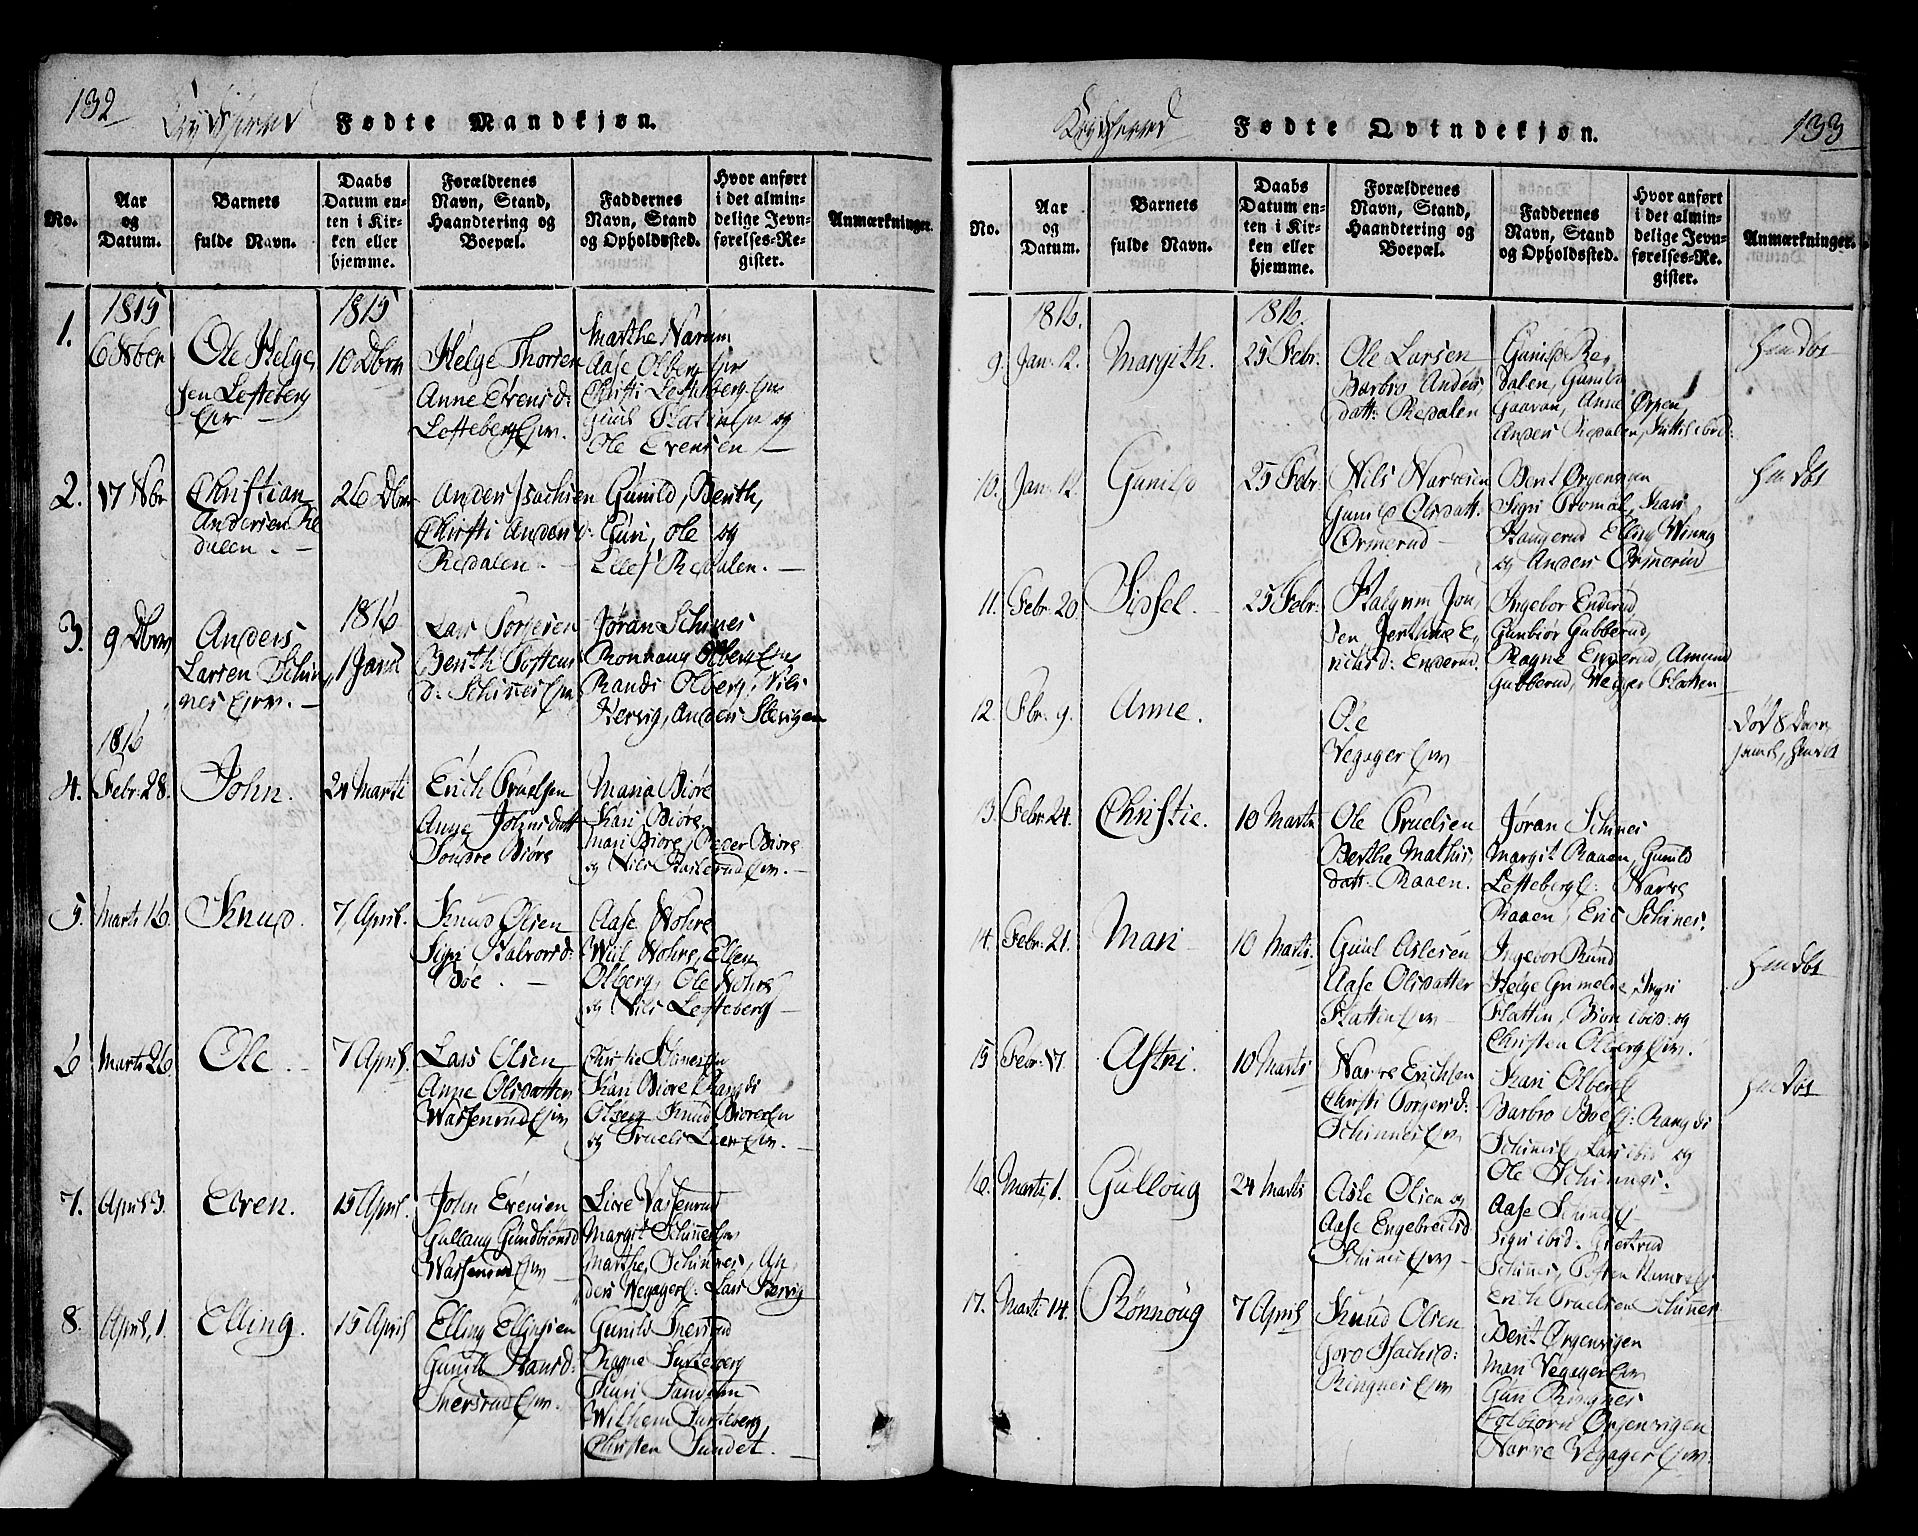 132
Krydsherred
Fødte Mandkjøn.
No.
Aar
og
Datum.
Barnets
fulde Navn.
Daabs
Datum en-
ten i Kir-
ken eller
hjemme.
Forældrenes
Navn, Stand,
Haandtering og
Boepæl.
Faddernes
Navn, Stand
og Opholdssted.
Hvor anført
i det almin-
delige Jevn-
førelses-Re-
gister.
Anmærkninger.
1.
1815
6 Nber
Ole Helge,
sen Lesteberg
1815
10 Dbr
Helge Thorsen
Anne Evensd:
Lesteberg
Marthe Narum
Aase Olberg
Christi Lesteberg
Ole Evensen
2.
17 Nbr
Christian
Andersen Re
dalen. –
26 Dbr
Anders Isachsen
Christi Anders d:
Redalen. –
Gunild, Berth,
Guri, Ole og
Ellef Redalen. –
3.
9 Dbr
Anders
Larsen Skin
nes
1816
1 Janu
Lars Torgersen
Berth Tostens
d: Skinnes
Jøran Skines
Ronnaug Olberg
Randi Olberg, Nils
Hervig, Anders
1816
4.
Febr: 28.
John.
24 Marti
Erich Truelsen
Anne Johnsdatt
Søndre Biøre
Maria Biøre
Kari Biøre,
Mari Biøre, Peder Biøre
og Nils
5.
Marti 16.
Knud.
7 April.
Knud Olsen
Sigri Halvorsd:
Bøe. –
Aase Nohre
Ellen
Olberg, Ole Nohre
og Nils Lesteberg –
6
Marti 26.
Ole.
7 April.
Lars Olsen
Anne Olsdatter
Wassenrud
Kari Biøre Rangdi
Olberg Knud Biøre
og Truels
7.
April 3.
Even.
15 April.
John Evensen
Gullaug Gundbiørnsd
Wassenrud
Live Wassenrud
Margit Skinnes
Marthe Skinnes, An,
ders Wegager Lars Hervig
8.
April, 1.
Elling.
15 April
Elling Ellingsen
Gunild Hansd:
Snersrud
Gunild Snersrud
Ragne Surteberg
Thuri
Wilhem Surteberg,
Christen Sundet. –
Krydsherred
Fødte Qvindekjøn.
133
No.
Aar
og
Datum.
Barnets
fulde Navn.
Daabs
Datum en-
ten i Kir-
ken eller
hjemme.
Forældrenes
Navn, Stand,
Haandtering og
Boepæl.
Faddernes
Navn, Stand
og Opholdssted.
Hvor anført
i det almin-
delige Jevn-
førelses-Re-
gister.
Anmærkninger.
1816.
1816.
9.
Jan: 12.
Margith.
25 Febr.
Ole Larsen
Barbro Anders,
datt: Redalen
Gunild Re,
dalen, Gunild
Gaaran, Anne Ørgen
Anders Redalen, ibid:
hmdbt
10.
Jan: 12.
Gunild
25 Febr.
Nils Narvesen
Gunild Olsdatt.
Ormerud –
Bent Ørgensvigen
Sigri Tromal, Kari
Haugerud Elling Winne
og Anders Ormerud
hmdbt
11.
Febr: 20.
Sissel.
25 Febr:
Halgrim Jon,
sen, E,
richsd: Enderud.
Ingebor Enderud,
Gunbiør Gubberud,
Ragne Enderud, Amund
Gubberud, Weger Flatten
12.
Fbr: 9.
Anne.
Ole
Vegager
død 8 Dage
hmdbt
13.
Febr. 24.
Christie.
10 Marti
Ole Truelsen
Berthe Mathis,
datt: Raaen.
Jøran Skines
Margit Raaen, Gunild
Lesteberg: Narve
Raaen, Eric Skines.
14.
Febr: 21.
Mari
10 Marti.
Guul Aslesen
Aase Olsdatter
Flatten
Ingebor Rund
Helge Grimelie, Ingri
Flatten, Biørn ibid: og
Christen Olberg
hmdbt
15
Febr: 17.
Astri.
10 Marti
Narve Erichsen
Christi Torgersd:
Skinnes
Kari Olberg
Barbro Bøe: Rangdi
Skinnes, Lars ibid og
Ole Skinnes.
hmdbt
16.
Marti, 1.
Gulloug
24 Marti
Asle Olsen og
Aase Engebretsd
Skines
Aase Skines
Sigri ibid. Giertrud
Skines, Tosten
Erich Truelsen Skinnes
17.
Marti 14.
Rønnoug
7 April
Knud Olsen
Goro Isachsd:
Ringnes
Berit Ørgensvigen
Mari Vegager
Guri Ringnes
Colbiørn Ørgensvigen
Narve Vegager